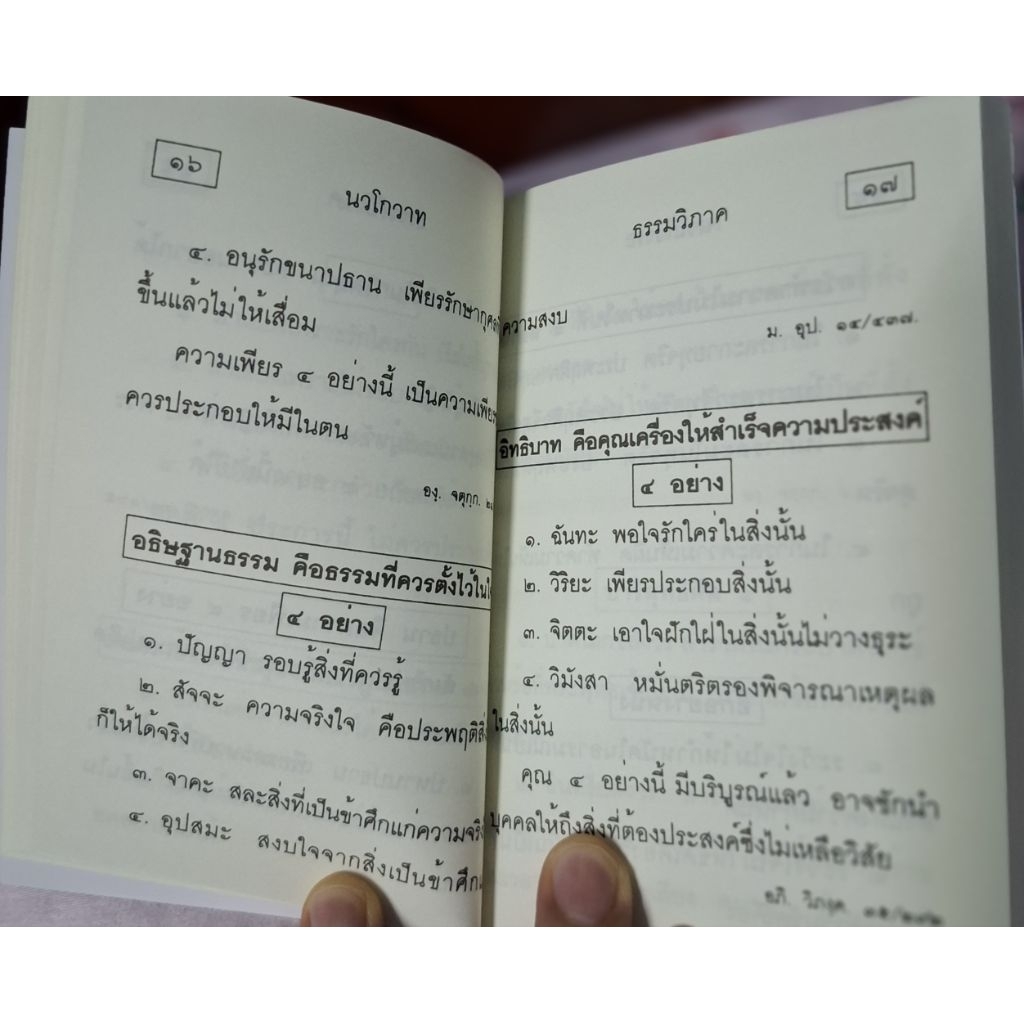 ๑๖
นวโกวาท
๔. อนุรักขนาปธาน เพียรรักษากุศล
ขึ้นแล้วไม่ให้เสื่อม
ความเพียร ๔ อย่างนี้ เป็นความเพียร
ควรประกอบให้มีในตน
องฺ. จตุกฺก.
อธิษฐานธรรม คือธรรมที่ควรตั้งไว้ใน
๔ อย่าง
๑. ปัญญา รอบรู้สิ่งที่ควรรู้
๒. สัจจะ ความจริงใจ คือประพฤติ
ก็ให้ได้จริง
๓. จาคะ สละสิ่งที่เป็นข้าศึกแก่ความจริง
๔. อุปสมะ สงบใจจากสิ่งเป็นข้าศึก
๑๗
ธรรมวิภาค
ความสงบ
ม. อุป. ๑๔/๔๓๗.
อิทธิบาท คือคุณเครื่องให้สำเร็จความประสงค์
๔ อย่าง
๑. ฉันทะ พอใจรักใคร่ในสิ่งนั้น
๒. วิริยะ เพียรประกอบสิ่งนั้น
๓. จิตตะ เอาใจฝักใฝ่ในสิ่งนั้นไม่วางธุระ
๔. วิมังสา หมั่นตริตรองพิจารณาเหตุผล
ในสิ่งนั้น
คุณ ๔ อย่างนี้ มีบริบูรณ์แล้ว อาจชักนำ
บุคคลให้ถึงสิ่งที่ต้องประสงค์ซึ่งไม่เหลือวิสัย
อภิ. วิภงฺค. ๓๕/๒๙๒